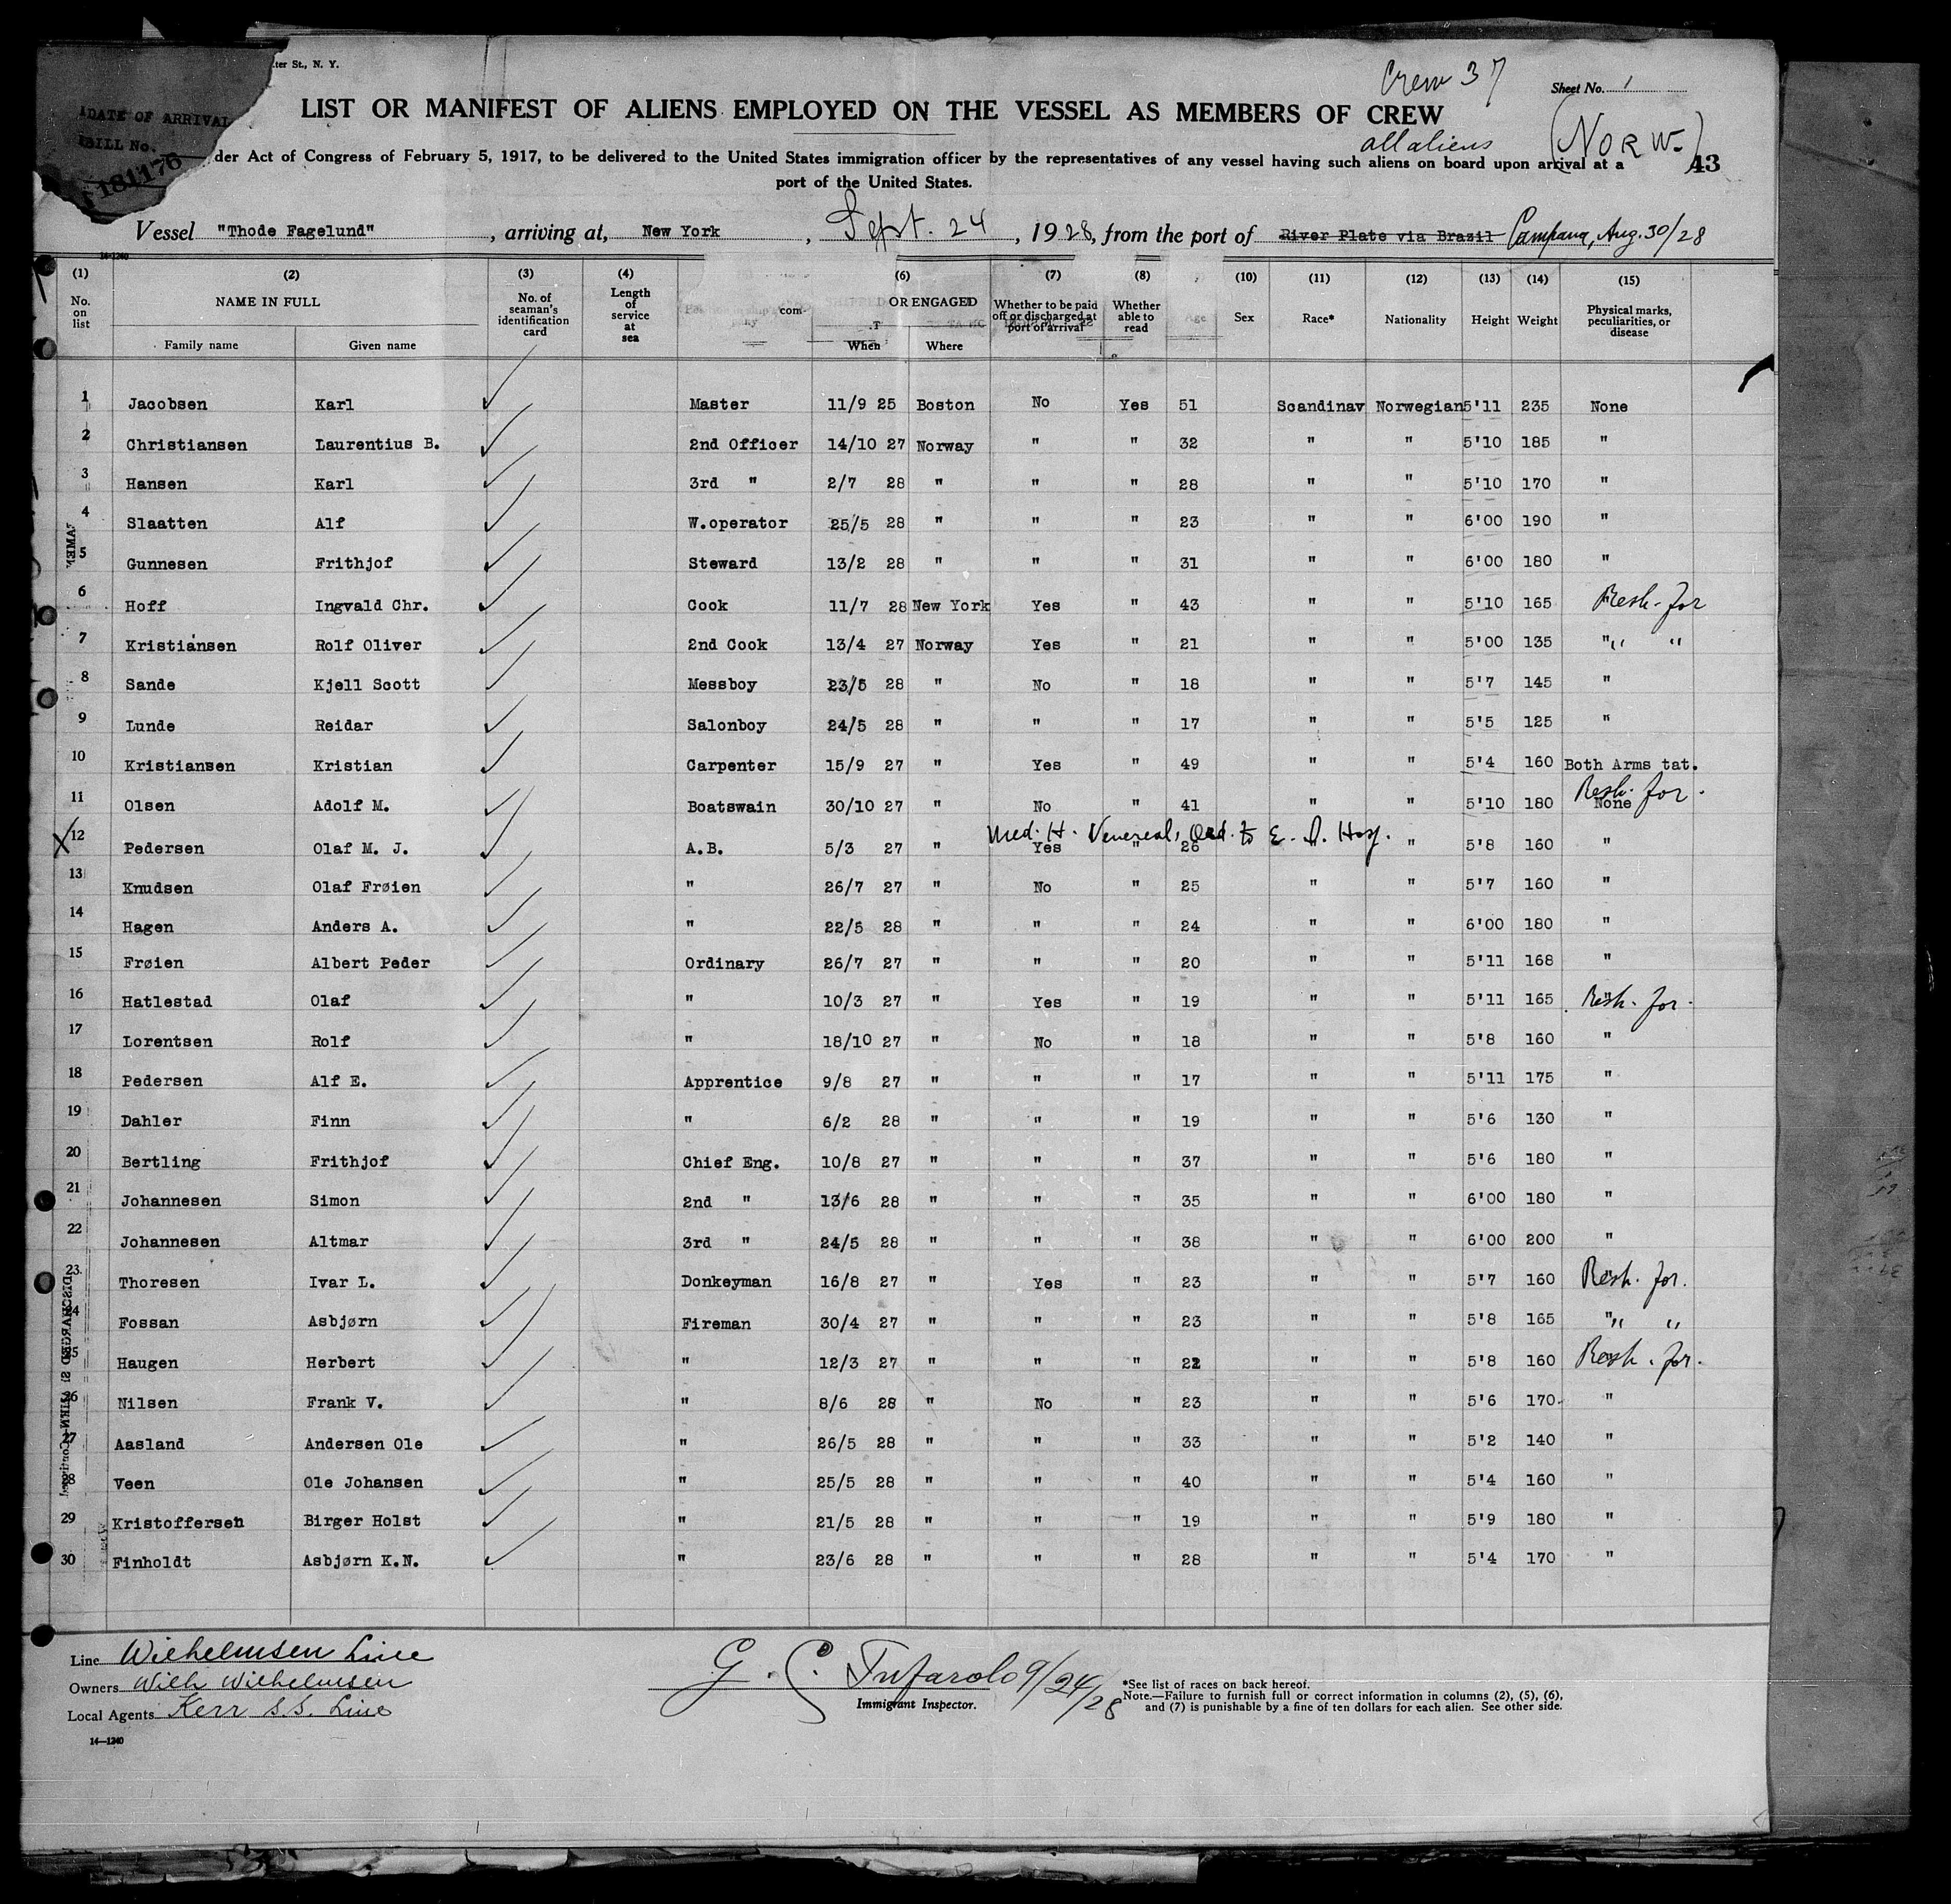 ter St., N. Y.
Crew 37
Sheet No. 1
DATE OF ARRIVAL
BILL No.
181176
LIST OR MANIFEST OF ALIENS EMPLOYED ON THE VESSEL AS MEMBERS OF CREW
all aliens (NORW.)
der Act of Congress of February 5, 1917, to be delivered to the United States immigration officer by the representatives of any vessel having such aliens on board upon arrival at a
port of the United States.
43
Vessel "Thode Fagelund", arriving at, New York, Sept. 24, 1928, from the port of River Plate via Brazil Campana, Aug. 30/28
14-1240
(1) (2) (3) (4) (6) (7) (8) (10) (11) (12) (13) (14) (15)
No. on list NAME IN FULL Family name Given name No. of seaman's identification card Length of service at sea com- pany OR ENGAGED When Where Whether to be paid off or discharged at port of arrival Whether able to read Age Sex Race* Nationality Height Weight Physical marks, peculiarities, or disease
1 Jacobsen Karl Master 11/9 25 Boston No Yes 51 Scandinav Norwegian 5'11 235 None
2 Christiansen Laurentius B. 2nd Officer 14/10 27 Norway " " 32 " " 5'10 185 "
3 Hansen Karl 3rd " 2/7 28 " " " 28 " " 5'10 170 "
4 Slaatten Alf W.operator 25/5 28 " " " 23 " " 6'00 190 "
5 Gunnesen Frithjof Steward 13/2 28 " " " 31 " " 6'00 180 "
6 Hoff Ingvald Chr. Cook 11/7 28 New York Yes " 43 " " 5'10 165 " Resh. for
7 Kristiansen Rolf Oliver 2nd Cook 13/4 27 Norway Yes " 21 " " 5'00 135 " " "
8 Sande Kjell Scott Messboy 23/5 28 " No " 18 " " 5'7 145 "
9 Lunde Reidar Salonboy 24/5 28 " " " 17 " " 5'5 125 "
10 Kristiansen Kristian Carpenter 15/9 27 " Yes " 49 " " 5'4 160 Both Arms tat.
Resh. for.
11 Olsen Adolf M. Boatswain 30/10 27 " No " 41 " " 5'10 180 None
Med. H. Venereal, Ord. to E. I. Hosp.
12 Pedersen Olaf M. J. A.B. 5/3 27 " Yes " 26 " 5'8 160 "
13 Knudsen Olaf Frøien " 26/7 27 " No " 25 " " 5'7 160 "
14 Hagen Anders A. " 22/5 28 " " " 24 " " 6'00 180 "
15 Frøien Albert Peder Ordinary 26/7 27 " " " 20 " " 5'11 168 "
16 Hatlestad Olaf " 10/3 27 " Yes " 19 " " 5'11 165 " Resh. for.
17 Lorentsen Rolf " 18/10 27 " No " 18 " " 5'8 160 "
18 Pedersen Alf E. Apprentice 9/8 27 " " " 17 " " 5'11 175 "
19 Dahler Finn " 6/2 28 " " " 19 " " 5'6 130 "
20 Bertling Frithjof Chief Eng. 10/8 27 " " " 37 " " 5'6 180 "
21 Johannesen Simon 2nd " 13/6 28 " " " 35 " " 6'00 180 "
22 Johannesen Altmar 3rd " 24/5 28 " " " 38 " " 6'00 200 "
23 Thoresen Ivar L. Donkeyman 16/8 27 " Yes " 23 " " 5'7 160 " Resh. for.
24 Fossan Asbjørn Fireman 30/4 27 " " " 23 " " 5'8 165 " " "
25 Haugen Herbert " 12/3 27 " " " 22 " " 5'8 160 " Resh. for.
26 Nilsen Frank V. " 8/6 28 " No " 23 " " 5'6 170 "
27 Aasland Andersen Ole " 26/5 28 " " " 33 " " 5'2 140 "
28 Veen Ole Johansen " 25/5 28 " " " 40 " " 5'4 160 "
29 Kristoffersen Birger Holst " 21/5 28 " " " 19 " " 5'9 180 "
30 Finholdt Asbjørn K.N. " 23/6 28 " " " 28 " " 5'4 170 "
Line Wilhelmsen Line
Owners Wilh Wilhelmsen
Local Agents Kerr S.S. Line
14—1240
G. C. Tufarolo 9/24/28
Immigrant Inspector.
*See list of races on back hereof.
Note.—Failure to furnish full or correct information in columns (2), (5), (6),
and (7) is punishable by a fine of ten dollars for each alien. See other side.